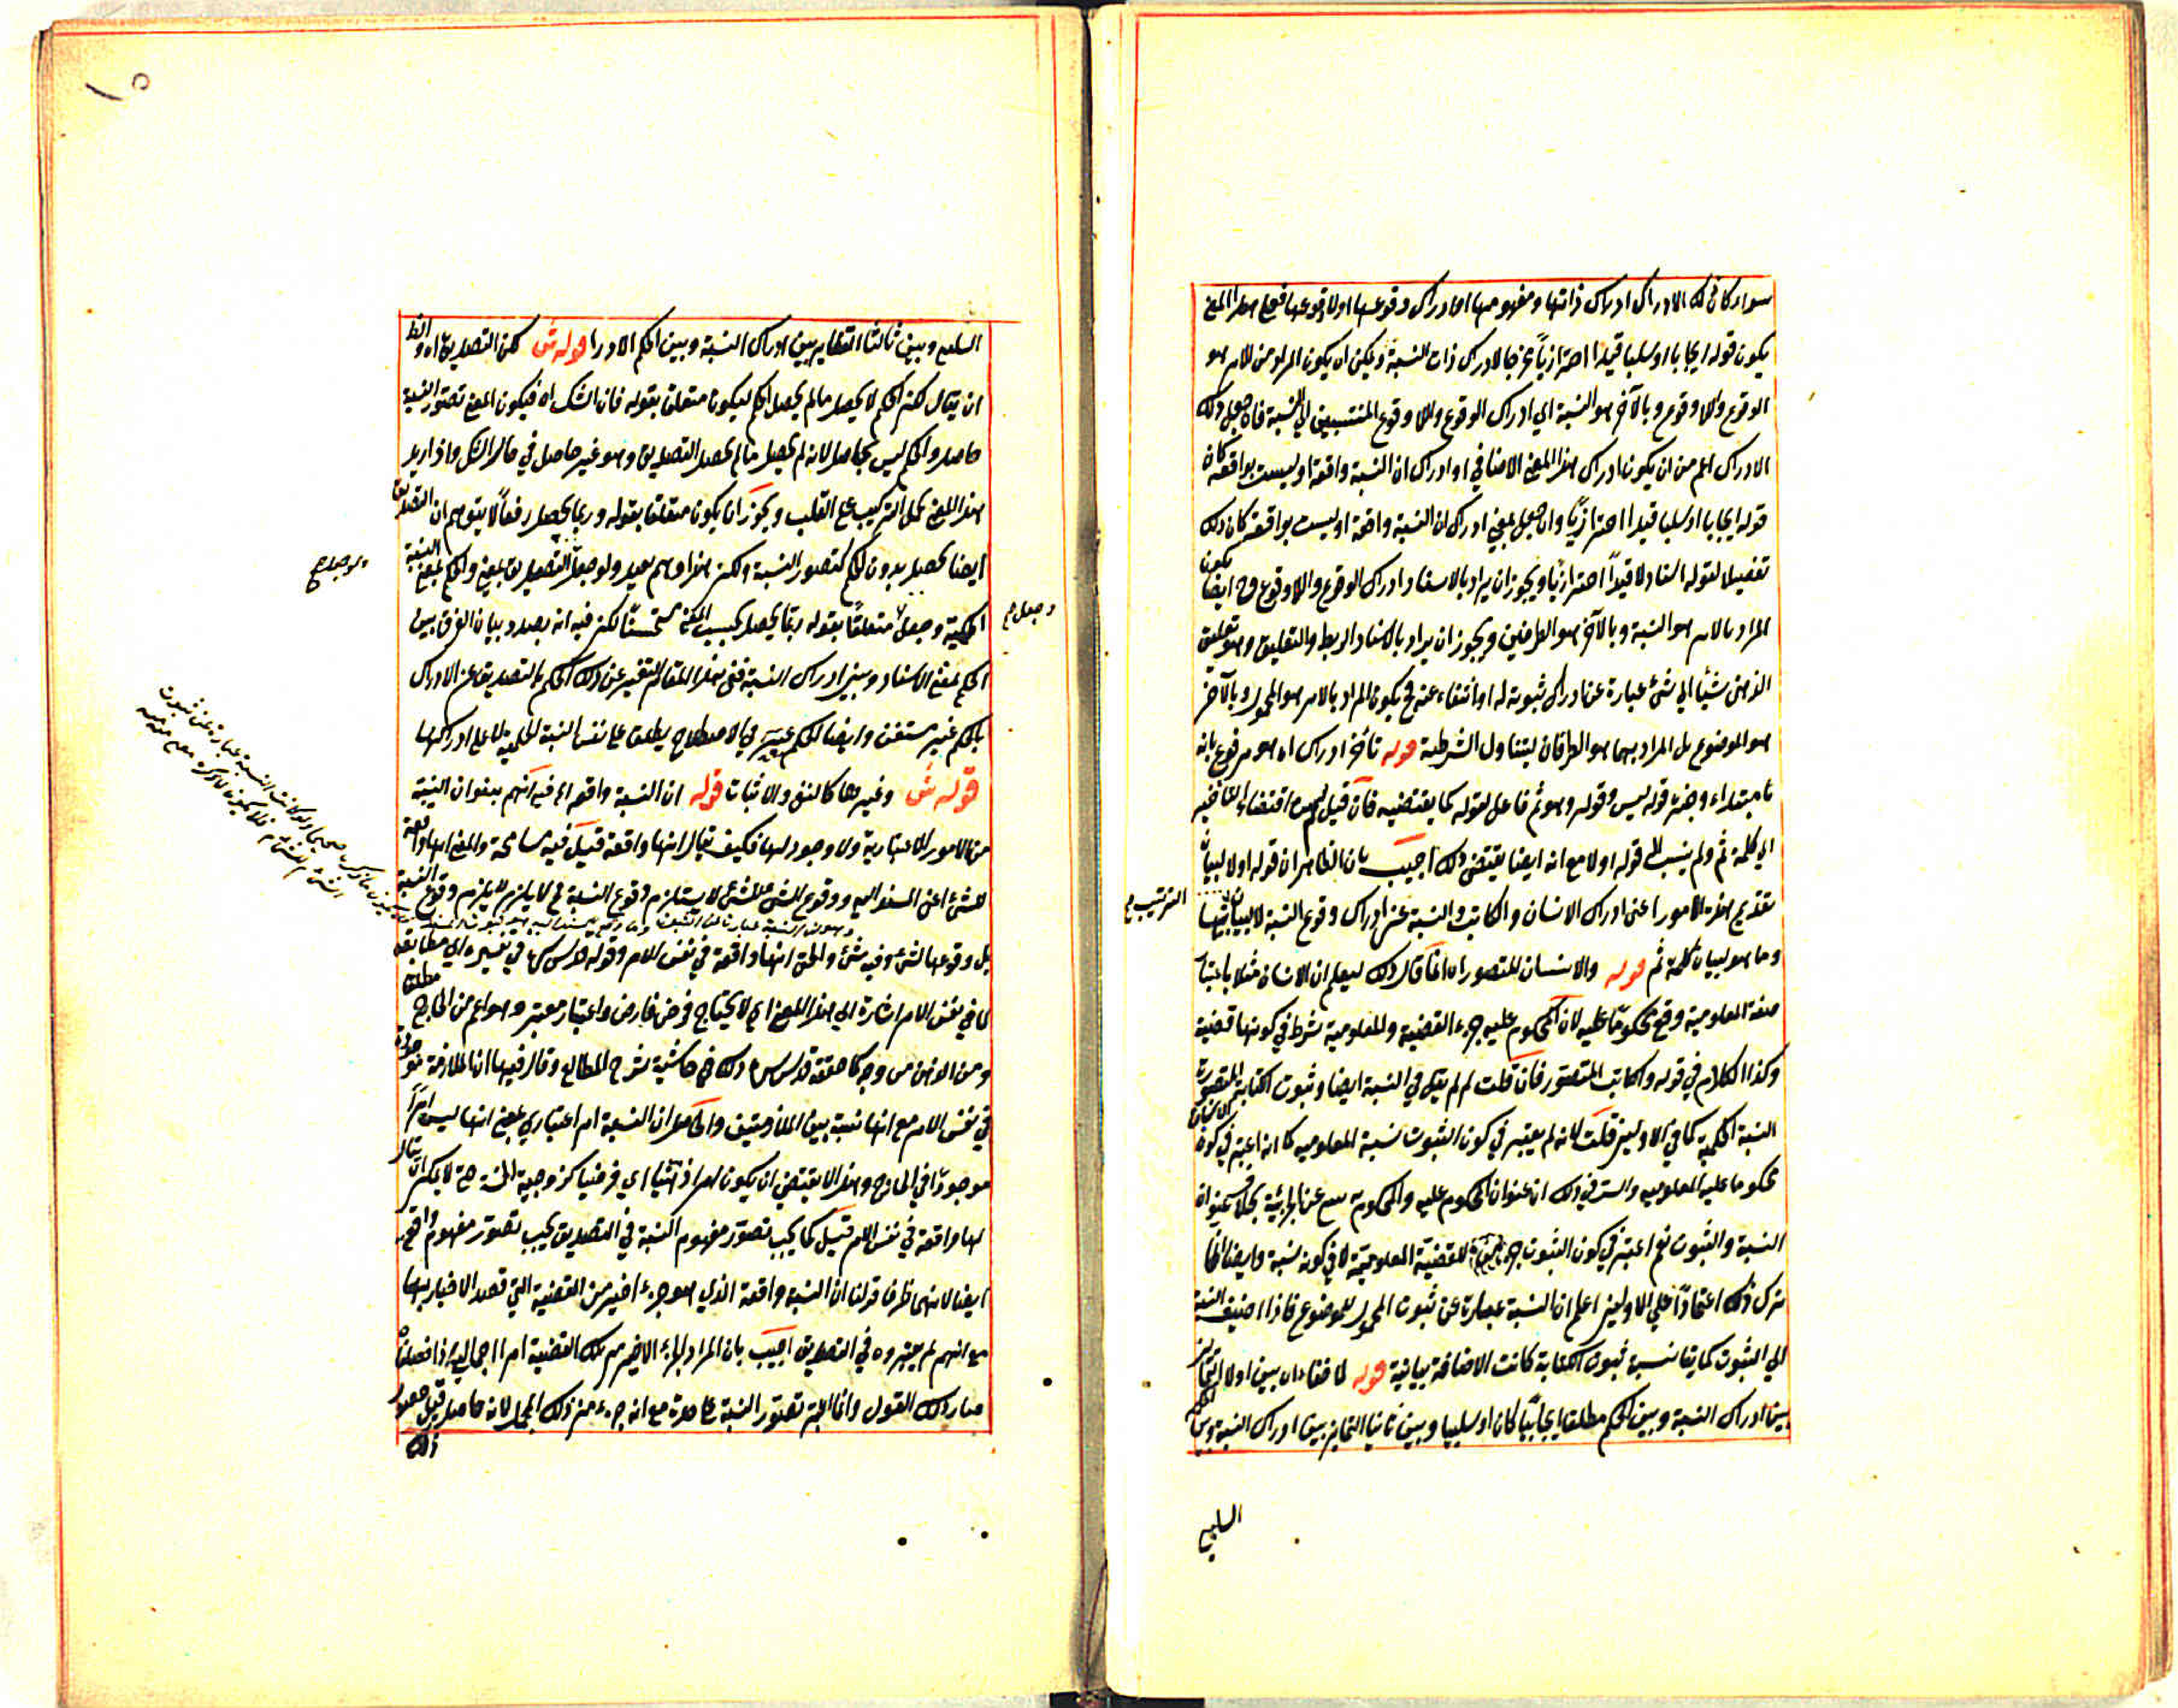 سواء كان ذلك الادراك ادراك ذاتها ومفهومها او ادراك وقوعها او لا وقوعها فعلى هذا المعنى
يكون قوله ايجابا او سلبا قيدا احترازياً مخرجا لادراك ذات النسبة ويمكن ان يكون المراد من الامر هو
الوقوع واللا وقوع وبالآخر هو النسبة اي ادراك الوقوع واللا وقوع المنتسبين الى النسبة فان جعل ذلك
الادراك اعم من ان يكون ادراك هذا المعنى الاضافي او ادراك ان النسبة واقعة او ليست بواقعة كان
قوله ايجابا او سلبا قيدا احترازيًا وان جعل بمعنى ادراك ان النسبة واقعة او ليست بواقعة كان ذلك
تفصيلا لقوله اسناد لا قيداً احترازيًا ويجوز ان يراد بالاسناد ادراك الوقوع واللا وقوع وح يكون ايضا
المراد بالامر هو النسبة وبالآخر هو الطرفين ويجوز ان يراد بالاسناد الربط والتعليق وهو تعليق
الذهن شيئا الى شئ عبارة عن ادراك ثبوته له او انتفاءه عنه فح يكون المراد بالامر هو المحمول وبالآخر
هو الموضوع بل المراد بهما هو الطرفان ليتناول الشرطية قوله تأخر ادراك اه هو مرفوع بانه
مبتداء وخبره قوله ليس وقوله وهو ثم فاعل لقوله كما يقتضيه فان قيل لم اقتضاء التأخير
الى كلمة ثم ولم ينسب الى قوله اولا مع انه ايضا يقتضى ذلك اجيب بان الظاهر ان قوله اولا لبيان
تقديم هذه الامور اعنى ادراك الانسان والكاتب والنسبة عن ادراك وقوع النسبة لا لبيان
الترتيب ح
وما هو لبيان كلمة ثم قوله والانسان المتصور اه انما قال ذلك ليعلم ان الانسان مثلا باعتبار
صفة المعلومية وقع محكومًا عليه لان المحكوم عليه جزء القضية والمعلومية شرط في كونها قضية
وكذا الكلام في قوله والكاتب المتصور فان قلت لم لم يقل في النسبة ايضا وثبوت الكتابة المتصورة
النسبة الحكمية كما في الاولين قلت لانه لم يعتبر في كون الثبوت نسبة المعلومية كما انه اعتبر في كون الانسان
محكوما عليه المعلومية والسر في ذلك ان عنوان المحكوم عليه والمحكوم به عن الجزئية بخلاف عنوان
النسبة والثبوت نعم اعتبر في كون الثبوت جزء للقضية المعلومية لا في كونه نسبة وايضا انما
ترك ذلك اعتمادًا على الاولين اعلم ان النسبة عبارة عن ثبوت المحمول للموضوع فاذا اضيف النسبة
الى الثبوت كما يقا نسبة ثبوت الكتابة كانت الاضافة بيانية قوله لا خفاء اه بين اولا التمايز
بين ادراك النسبة وبين الحكم مطلقا ايجابيًا كان او سلبيا وبين ثانيا التمايز بين ادراك النسبة وبين الحكم
السلبى
السلبى وبين ثالثا التغاير بين ادراك النسبة وبين الحكم الادرا قوله ش لكن التصديق اه والظ
ان يقال لكن الحكم لا يحصل ما لم يحصل الحكم ليكون متعلق بقوله فان الشك اه فيكون المعنى تصور النسبة
حاصل والحكم ليس بحاصل لانه لم يحصل ما لم يحصل التصديق وهو غير حاصل في حال الشك واذ اريد
هذا المعنى يحمل التركيب على القلب ويجوز ان يكون متعلقا بقوله وربما يحصل رفعاً لا يتوهم ان التصديق
ايضا يحصل بدون الحكم كتصور النسبة ولكن هذا وهم بعيد ولو جعل التصديق بمعنى والحكم بمعنى النسبة
الحكمية وجعل متعلقًا بقوله ربما يحصل بحسب مستحسنًا لكن فيه انه بصدد بيان الفرق بين
وجعل ح
الحكم بمعنى الاسناد وبين ادراك النسبة ففى هذا المقام التعبير عن ذلك الحكم بالتصديق عن الادراك
بالحكم غير مستحسن وايضا الحكم في الاصطلاح يطلق على نفس النسبة الحكمية لا على ادراكها
قوله ش وغيرها كالنفى والاثبات قوله ان النسبة واقعة اه فيه انهم يقولون ان النسبة
من الامور الاعتبارية ولا وجود لها فكيف يقال انها واقعة قيل فيه مسامحة والمعنى انها واقعة
للشئ اعنى المسند اليه ووقوع الشئ للشئ لا يستلزم وقوع النسبة فح لا يلزم وقوع النسبة
بل وقوعها لشئ وفيه شئ والحق انها واقعة في نفس الامر وقوله قدس سره في تفسيره اي مطابقة
لما في نفس الامر اشارة الى هذا المعنى اي لا يحتاج فرض فارض واعتبار معتبر وهو اعم من الخارج مطلقا
ومن الذهن من وجه كما حققه قدس سره ذلك في حاشية شرح المطالع وقال فيها ان الملازمة موجودة
في نفس الامر مع انها نسبة بين المتلازمتين والحاصل ان النسبة امر اعتباري بمعنى انها ليس امرًا
موجودًا في الخارج وهذا لا يقتضى ان يكون امرا ذهنيا اي فرضيا كزوجية الخمسة حتى لا يمكن ان يقال
لها واقعة في نفس الامر قيل كما يجب تصور مفهوم النسبة في التصديق يجب تصور مفهوم واقع
ايضا لانهما طرفا قولنا ان النسبة واقعة الذي هو جزء اخير من القضية التي قصد الاخبار بها
مع انهم لم يعتبروه في التصديق اجيب بان المراد بالجزء الاخير من تلك القضية امر اجمالي اذا فصلناه
صار ذلك القول وانما اعتبر تصور النسبة على حدة مع انه جزء من ذلك المجمل لانه حاصل قبل حصول
ذلك